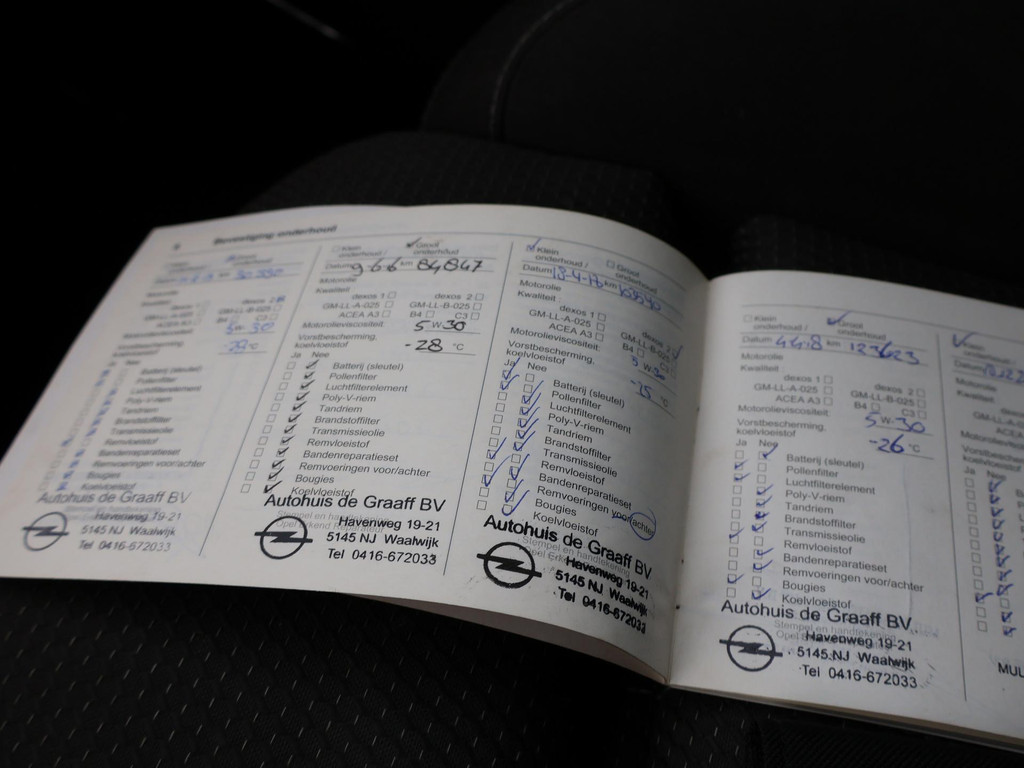 Bevestiging onderhoud
dexos 2
5 W 30
Batterij (sleutel)
Pollenfilter
Luchtfilterelement
Poly-V-riem
Tandriem
Brandstoffilter
Transmissieolie
Remvloeistof
Bandenreparatieset
Remvoeringen voor/achter
Bougies
Koelvloeistof
Autohuis de Graaff BV
Havenweg 19-21
5145 NJ Waalwijk
Tel 0416-672033
Klein onderhoud / Groot onderhoud
Datum 9-6-6 km 84847
Motorolie
Kwaliteit
dexos 1 dexos 2
GM-LL-A-025 GM-LL-B-025
ACEA A3 B4 C3
Motorolieviscositeit 5 W 30
Vorstbescherming.
koelvloeistof -28 °C
Ja Nee
Batterij (sleutel)
Pollenfilter
Luchtfilterelement
Poly-V-riem
Tandriem
Brandstoffilter
Transmissieolie
Remvloeistof
Bandenreparatieset
Remvoeringen voor/achter
Bougies
Koelvloeistof
Autohuis de Graaff BV
Stempel en handtekening
Opel Erkend Reparateur
Havenweg 19-21
5145 NJ Waalwijk
Tel 0416-672033
Klein onderhoud / Groot onderhoud
Datum km
Motorolie
Kwaliteit
dexos 1 dexos 2
GM-LL-A-025 GM-LL-B-025
ACEA A3 B4 C3
Motorolieviscositeit 5 W 30
Vorstbescherming.
koelvloeistof -25 °C
Ja Nee
Batterij (sleutel)
Pollenfilter
Luchtfilterelement
Poly-V-riem
Tandriem
Brandstoffilter
Transmissieolie
Remvloeistof
Bandenreparatieset
Remvoeringen voor/achter
Bougies
Koelvloeistof
Autohuis de Graaff BV
Stempel en handtekening
Havenweg 19-21
5145 NJ Waalwijk
Tel 0416-672033
Klein onderhoud / Groot onderhoud
Datum 4-4-8 km 123623
Motorolie
Kwaliteit
dexos 1 dexos 2
GM-LL-A-025 GM-LL-B-025
ACEA A3 B4 C3
Motorolieviscositeit: 5 W-30
Vorstbescherming.
koelvloeistof -26 °C
Ja Nee
Batterij (sleutel)
Pollenfilter
Luchtfilterelement
Poly-V-riem
Tandriem
Brandstoffilter
Transmissieolie
Remvloeistof
Bandenreparatieset
Remvoeringen voor/achter
Bougies
Koelvloeistof
Autohuis de Graaff BV
Stempel en handtekening
Havenweg 19-21
5145 NJ Waalwijk
Tel 0416-672033
Klein
onderhoud
Datum
Motorolie
Kwaliteit
GM-LL-A
ACEA
Ja Nee